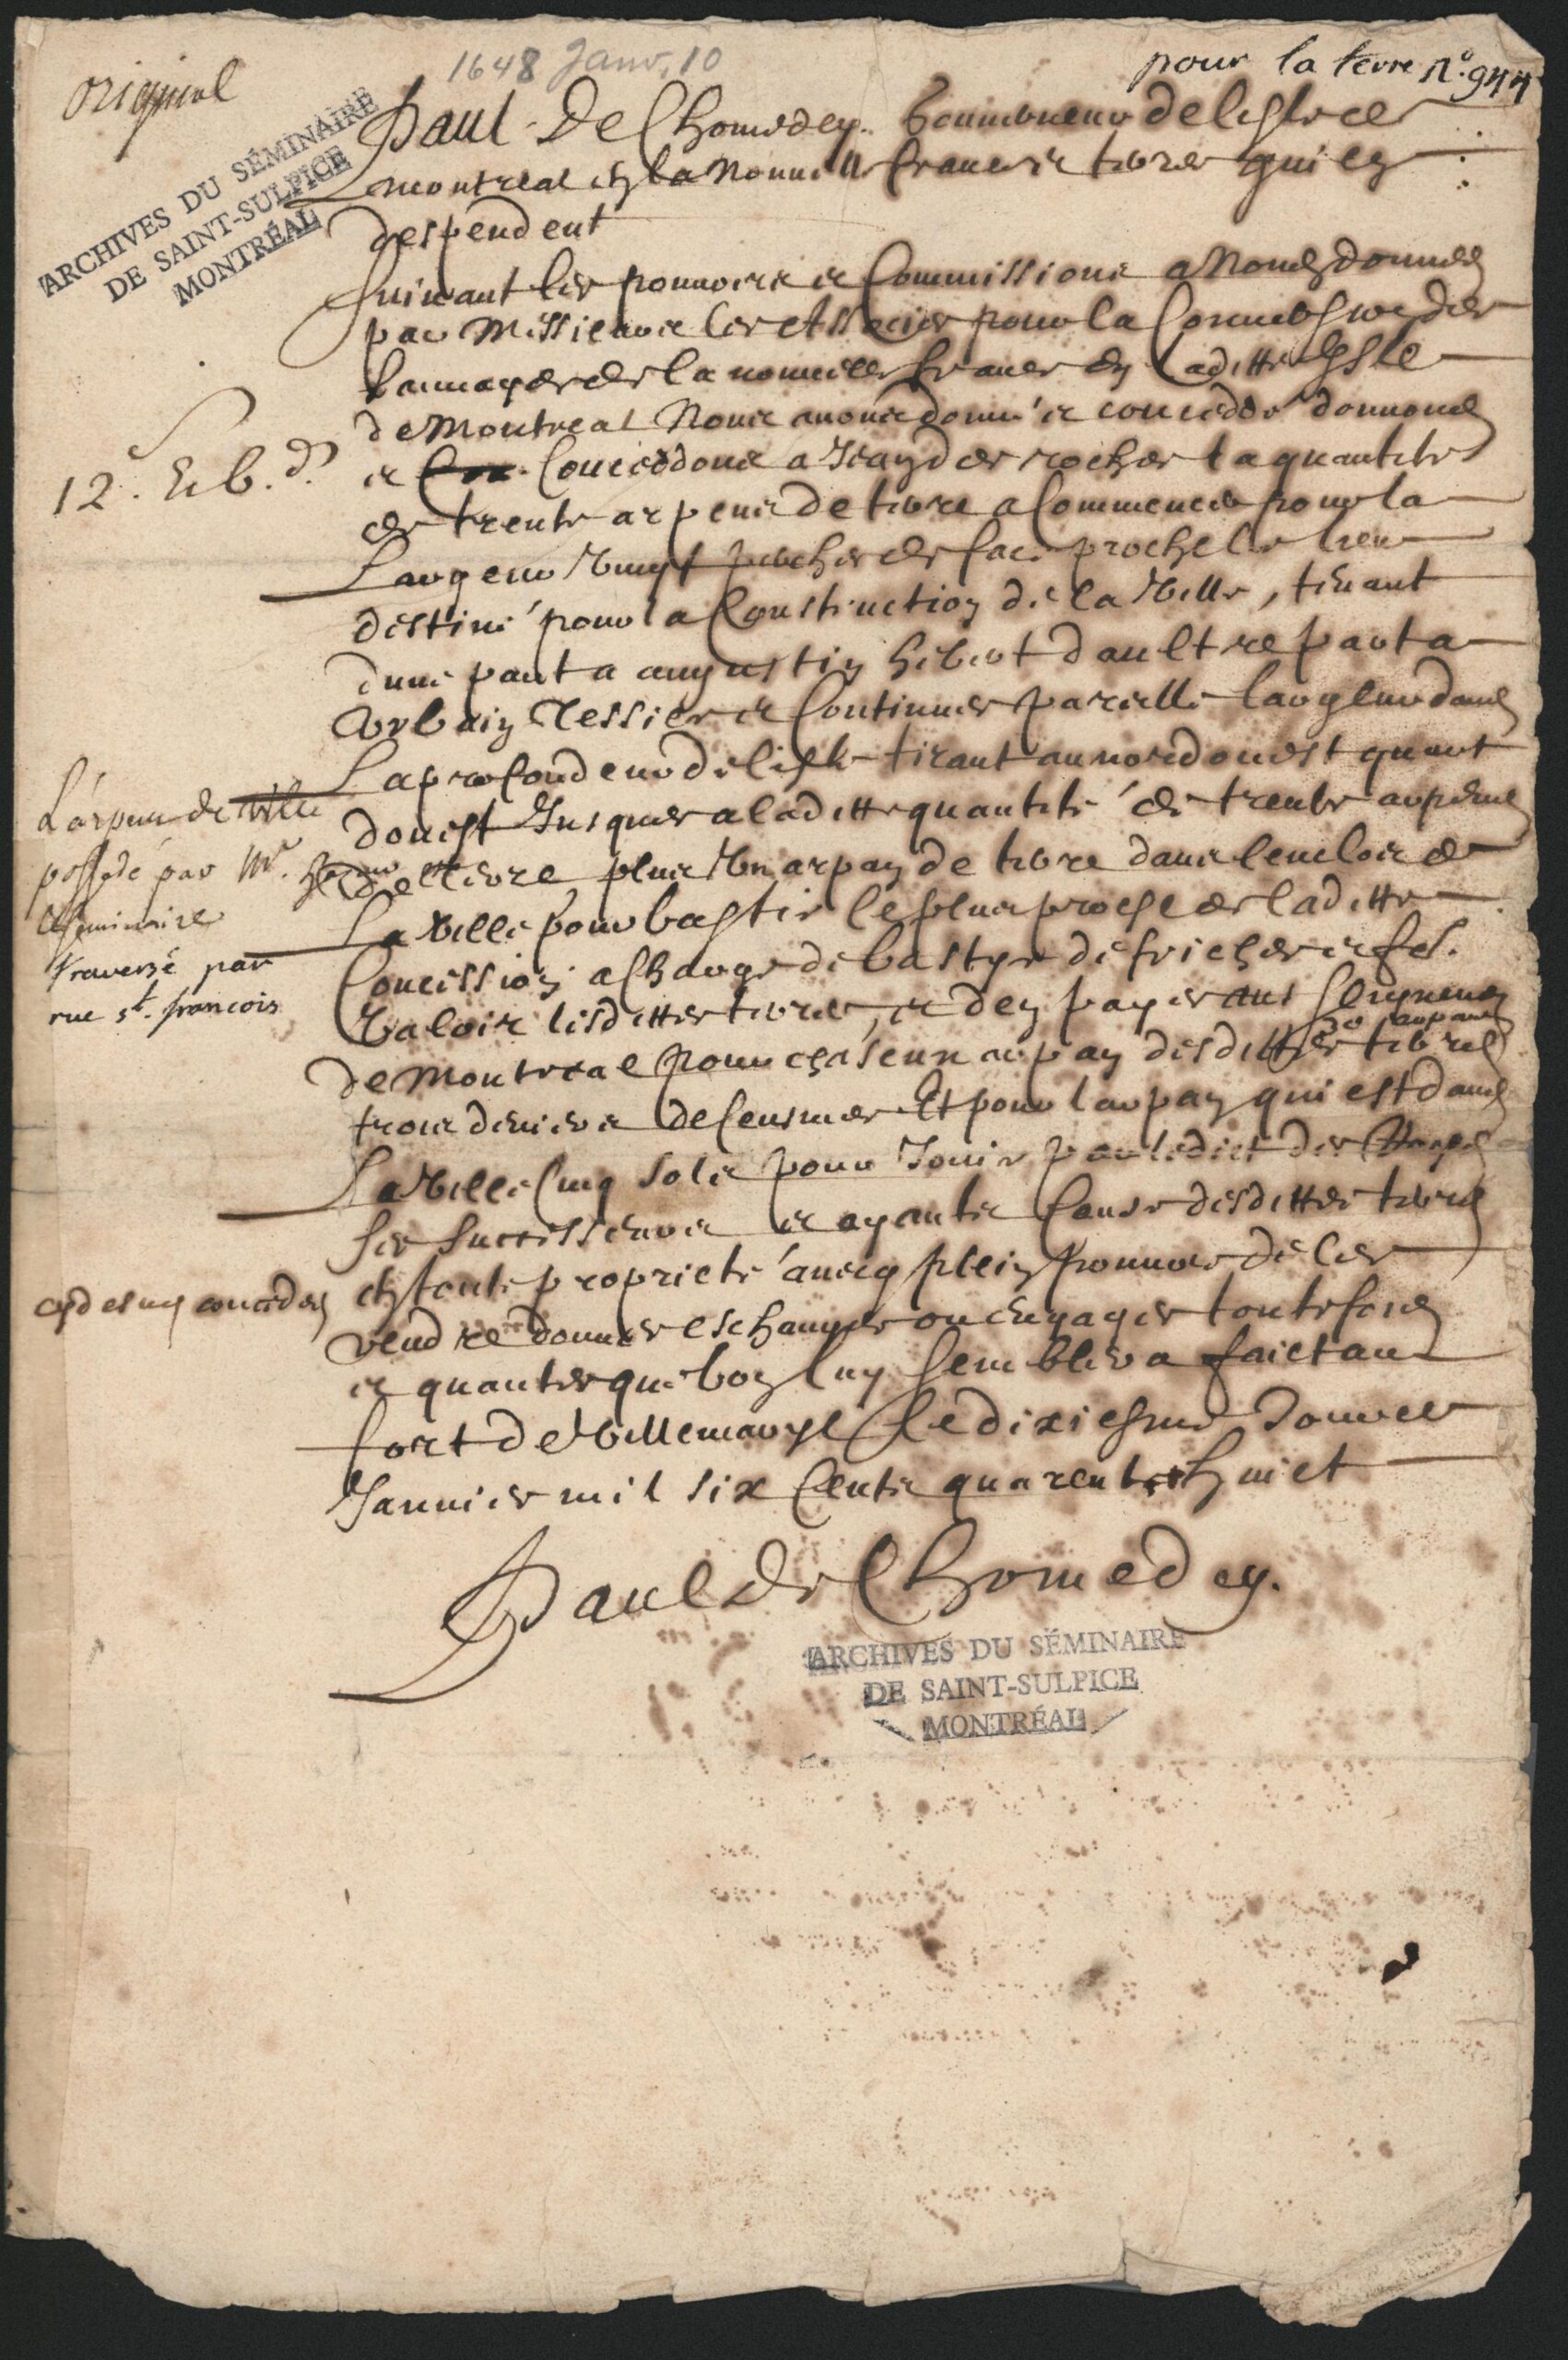 original
1648 Janv. 10
pour la terre N.º 944
ARCHIVES DU SÉMINAIRE
DE SAINT-SULPICE
MONTRÉAL
Paul De Chomedey. Gouverneur de lisle de
montreal en la Nouvelle france et terres qui en
despendent
Suivant les pouvoirs et Commissions a Nous donnez
par Messieurs les Associez pour la Conversion des
sauvages de la nouvelle france en Laditte Isle
de Montreal Nous avons donné et concedé donnons
et Concedons a Jean des roches la quantité
de trente arpens de terre a Commencer pour la
Largeur Vingt perches de face proche le lieu
destiné pour la Construction de la Ville, tenant
dune part a augustin hebert daultre part a
Urbain Tessier et Continuer pareille largeur dans
La profondeur de lisle tirant au nordouest quart
douest Jusques a laditte quantité de trente arpens
de terre, plus Un arpan de terre dans lenclos de
La Ville pour bastir le plus proche de laditte
Concession; a Charge de bastyr défricher et fe.
Valoir lesdittes terres, et den payer aus Seigneurs
de Montreal pour chascun arpan desdittes terres
trois deniers de Censives Et pour larpan qui est dans
La Ville Cinq Sols pour Jouir par ledict des Roches
ses Successeurs et ayants Cause desdittes terres
en toute proprieté avecq plein pouvoir de les
vendre donner eschanger ou Engager toutefois
et quantes que bon luy semblera faict au
fort de Villemarye Le dixiesme Jour de
Janvier mil six Cents quarente huict
Paul de Chomedey.
12.
L'arpan de ville
possedé par Mr.
le seminaire
traversé par
rue st. francois
cydesus concedez
ARCHIVES DU SÉMINAIRE
DE SAINT-SULPICE
MONTRÉAL